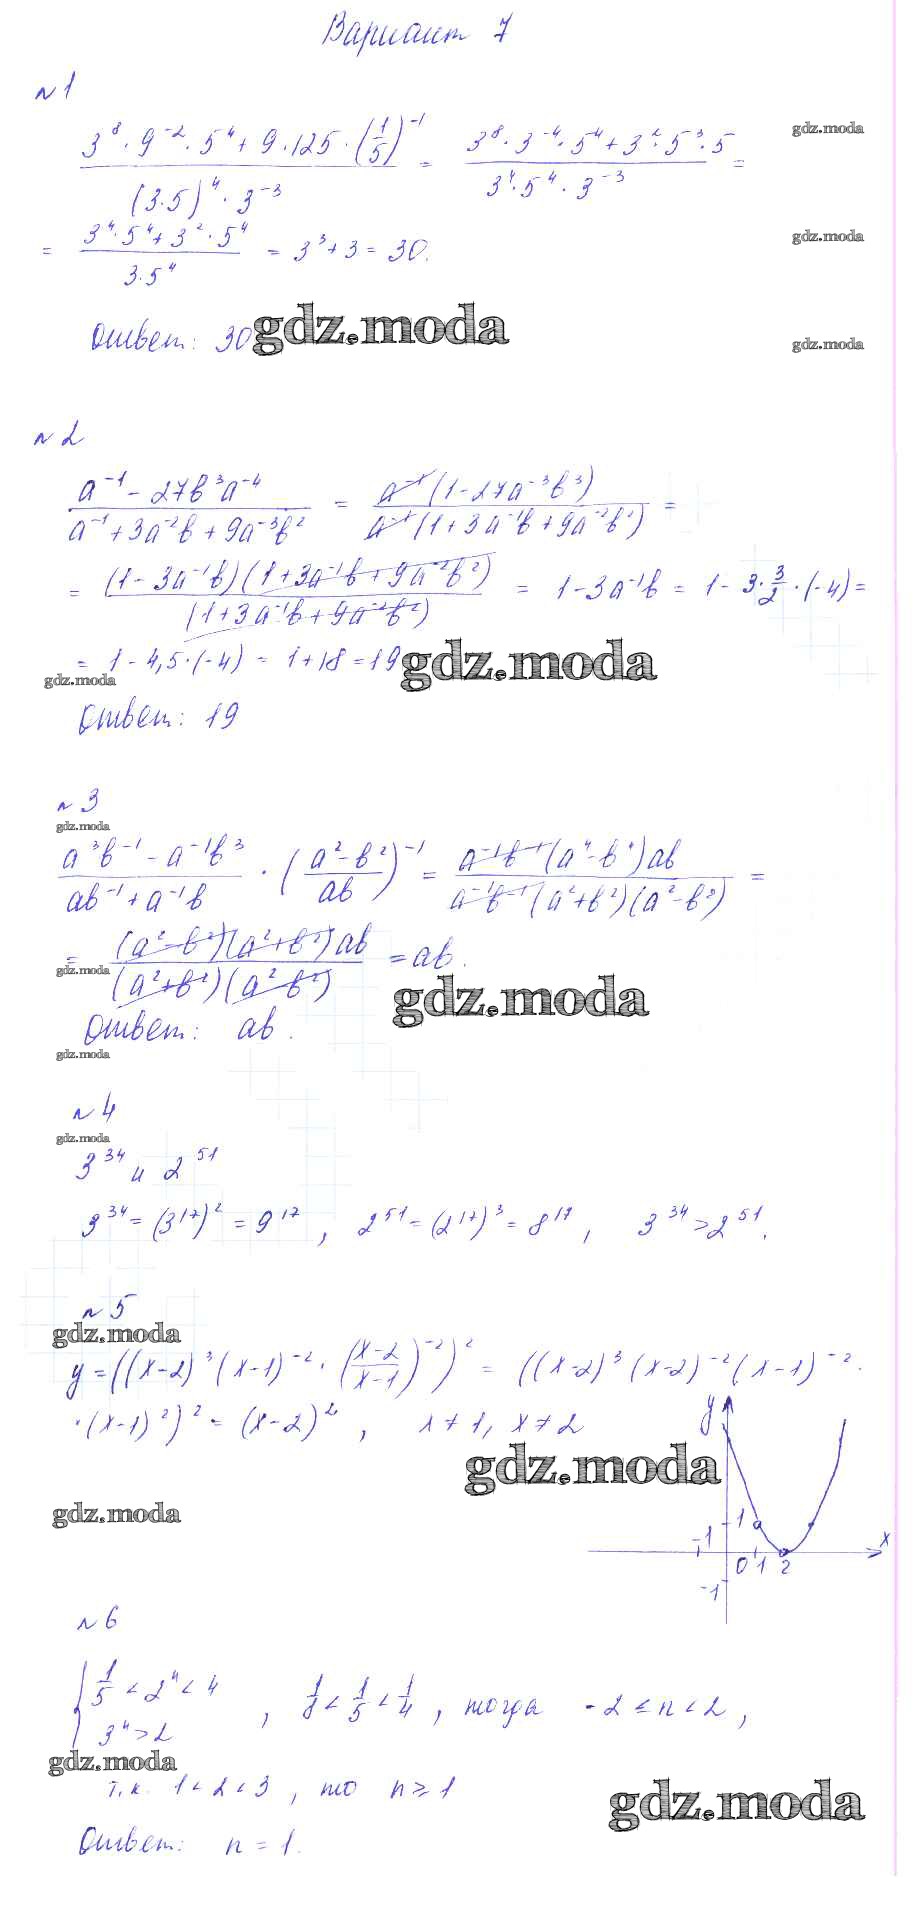 Вариант 7
№1
(3⁸·9⁻²·5⁴+9·125·(1/5)⁻¹)/((3·5)⁴·3⁻³) = (3⁸·3⁻⁴·5⁴+3²·5³·5)/(3⁴·5⁴·3⁻³) =
gdz.moda
= (3⁴·5⁴+3²·5⁴)/(3·5⁴) = 3³+3=30.
gdz.moda
Ответ: 30
gdz.moda
gdz.moda
№2
(a⁻¹-27b³a⁻⁴)/(a⁻¹+3a⁻²b+9a⁻³b²) = (a⁻¹(1-27a⁻³b³))/(a⁻¹(1+3a⁻¹b+9a⁻²b²)) =
= ((1-3a⁻¹b)(1+3a⁻¹b+9a⁻²b²))/((1+3a⁻¹b+9a⁻²b²)) = 1-3a⁻¹b = 1-3·3/2·(-4)=
= 1-4,5·(-4) = 1+18=19
gdz.moda
gdz.moda
Ответ: 19
№3
gdz.moda
(a³b⁻¹-a⁻¹b³)/(ab⁻¹+a⁻¹b) · ((a²-b²)/ab)⁻¹ = (a⁻¹b⁻¹(a⁴-b⁴)ab)/(a⁻¹b⁻¹(a²+b²)(a²-b²)) =
= ((a²-b²)(a²+b²)ab)/((a²+b²)(a²-b²)) = ab.
gdz.moda
gdz.moda
Ответ: ab.
gdz.moda
№4
gdz.moda
3³⁴ и 2⁵¹
3³⁴=(3¹⁷)²=9¹⁷, 2⁵¹=(2¹⁷)³=8¹⁷, 3³⁴>2⁵¹.
№5
gdz.moda
y=((x-2)³(x-1)⁻²·((x-2)/(x-1))⁻²)² = ((x-2)³(x-2)⁻²(x-1)⁻²·
·(x-1)²)²=(x-2)², x≠1, x≠2
y
gdz.moda
gdz.moda
1
-1
x
0 1 2
-1
№6
{1/5<2ⁿ<4
3ⁿ>2
, 1/8<1/5<1/4, тогда -2≤n<2,
gdz.moda
т.к. 1<2<3, то n≥1
gdz.moda
Ответ: n=1.